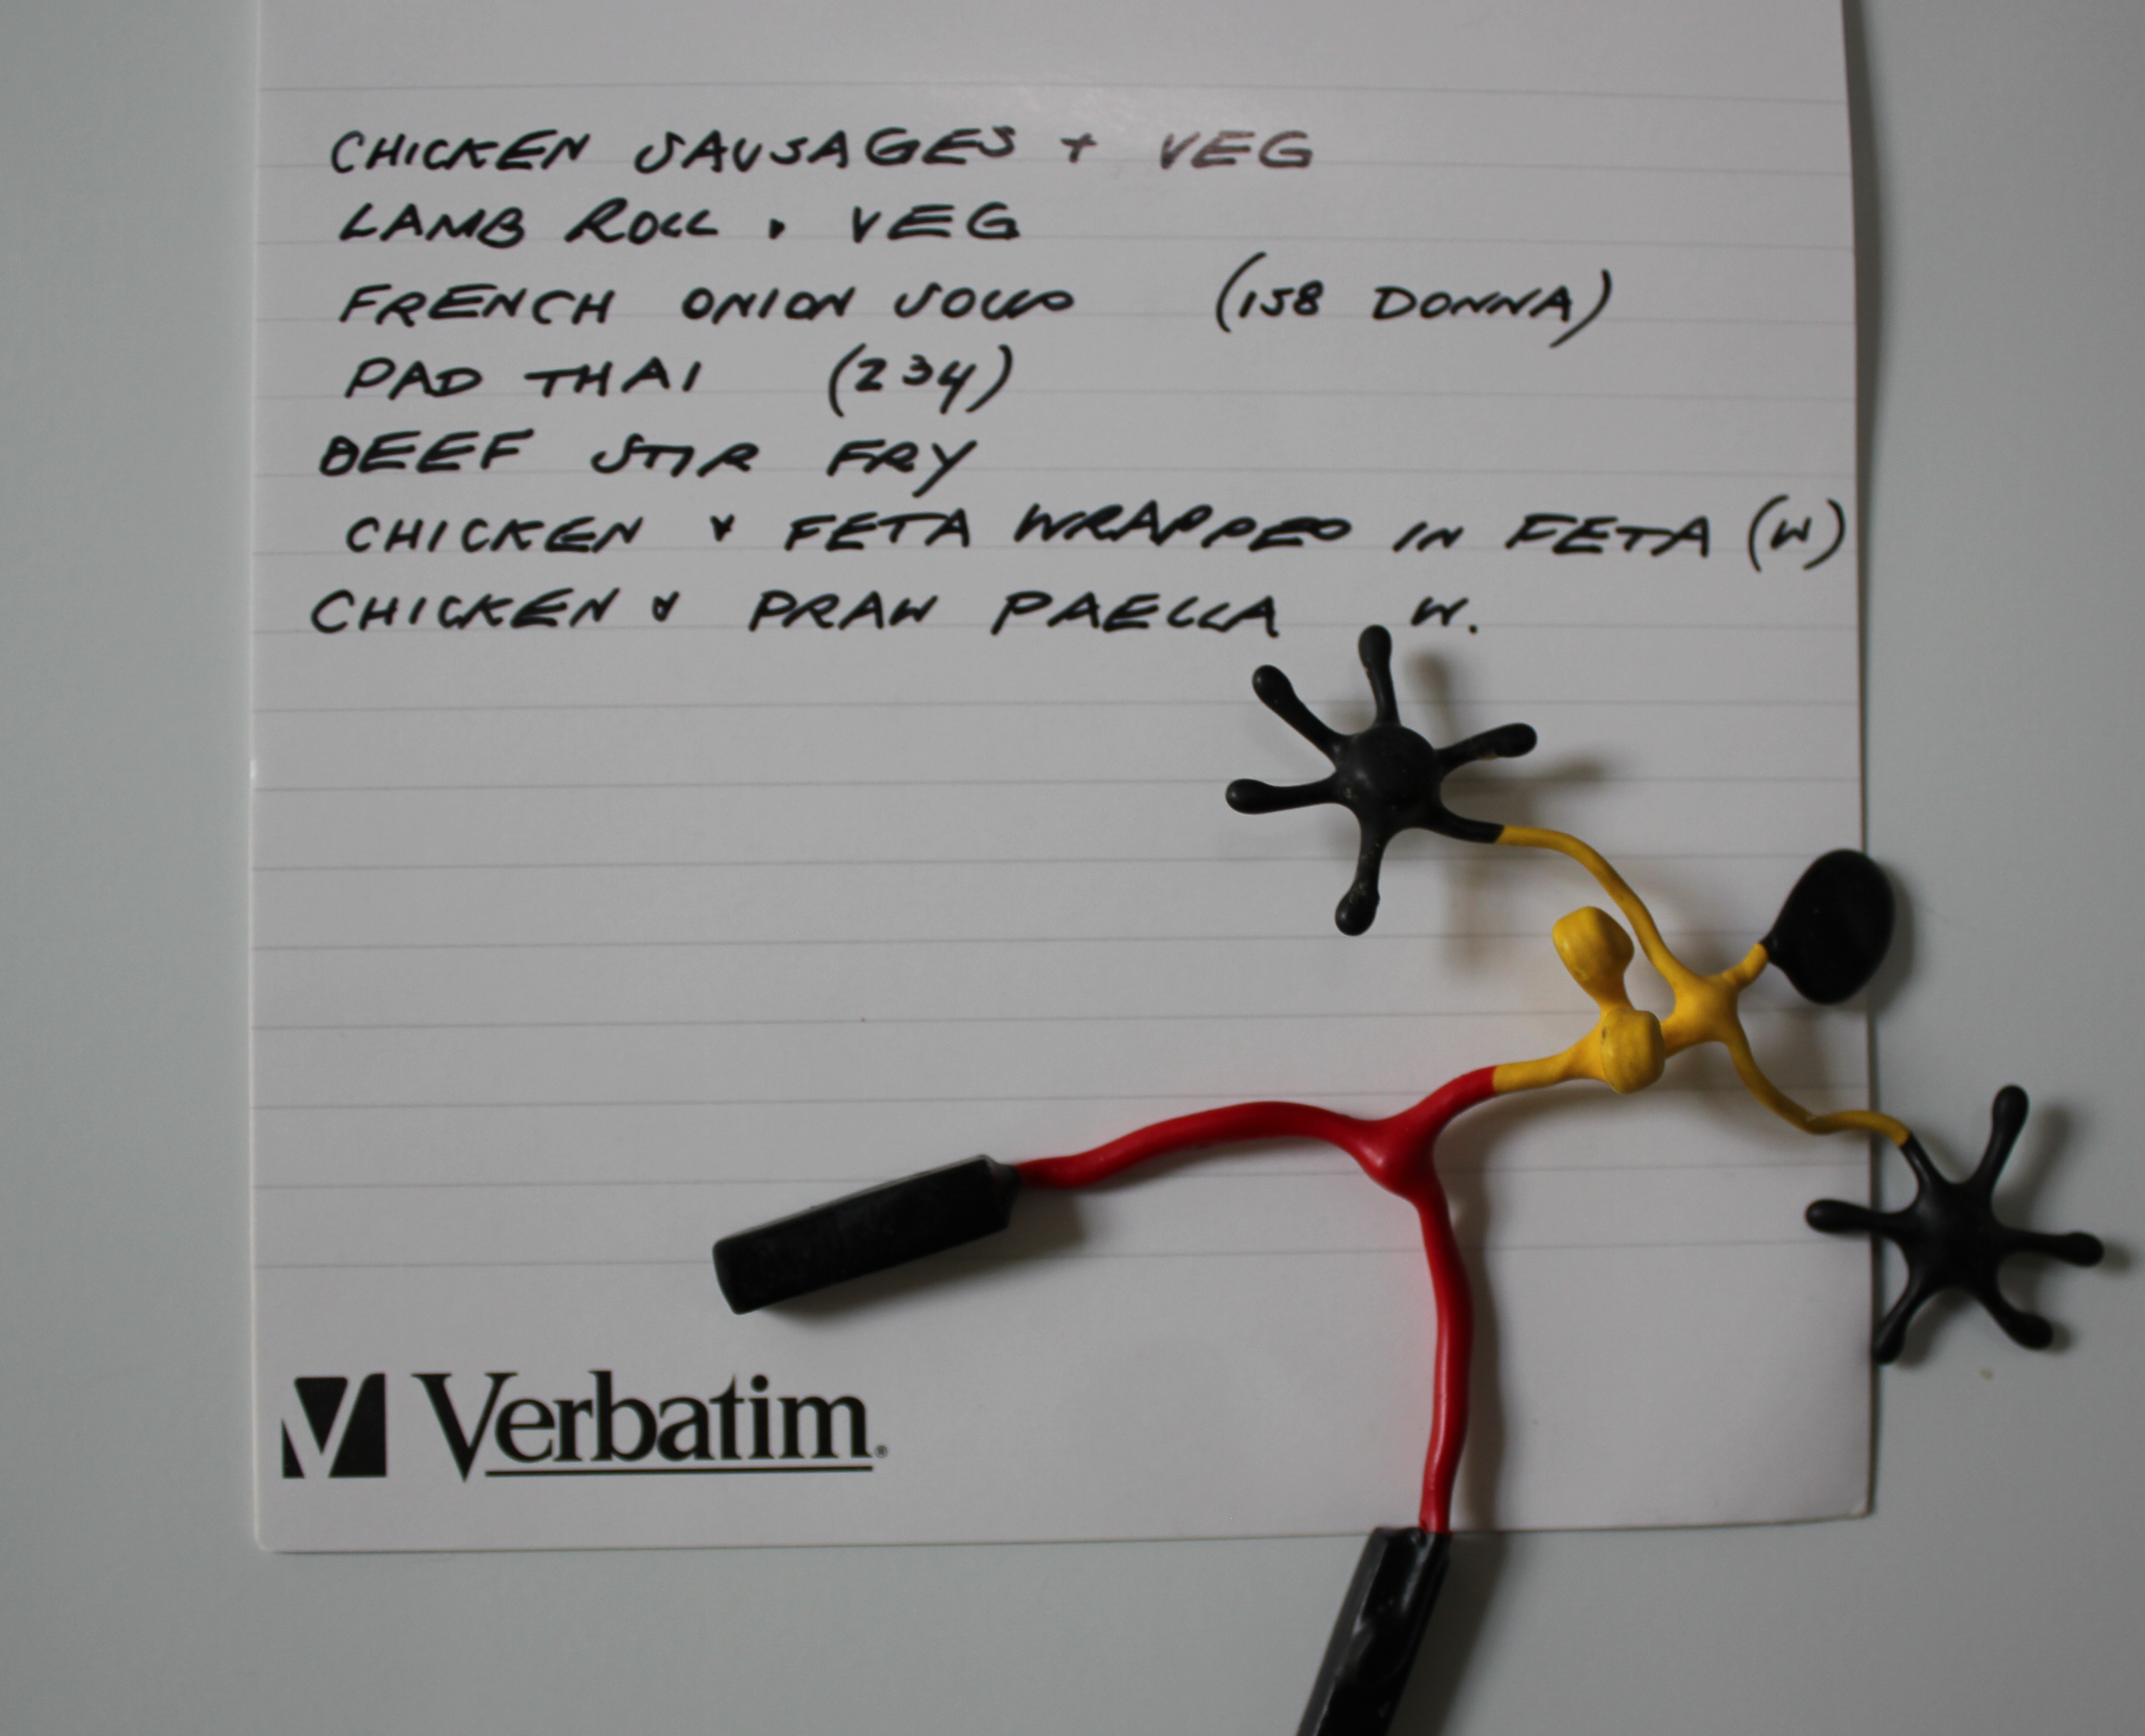 CHICKEN SAUSAGES + VEG
LAMB ROLL + VEG
FRENCH ONION SOUP (158 DONNA)
PAD THAI (234)
BEEF STIR FRY
CHICKEN & FETA WRAPPED IN FETA (W)
CHICKEN & PRAW PAELLA W.
Verbatim®